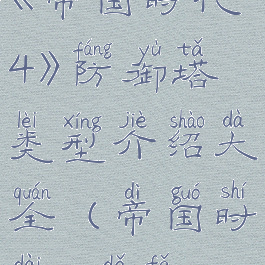 《帝国时代
fáng yù tǎ
4》防御塔
lèi xíng jiè shào dà
类型介绍大
quán dì guó shí
全（帝国时
dài dǎ fǎ